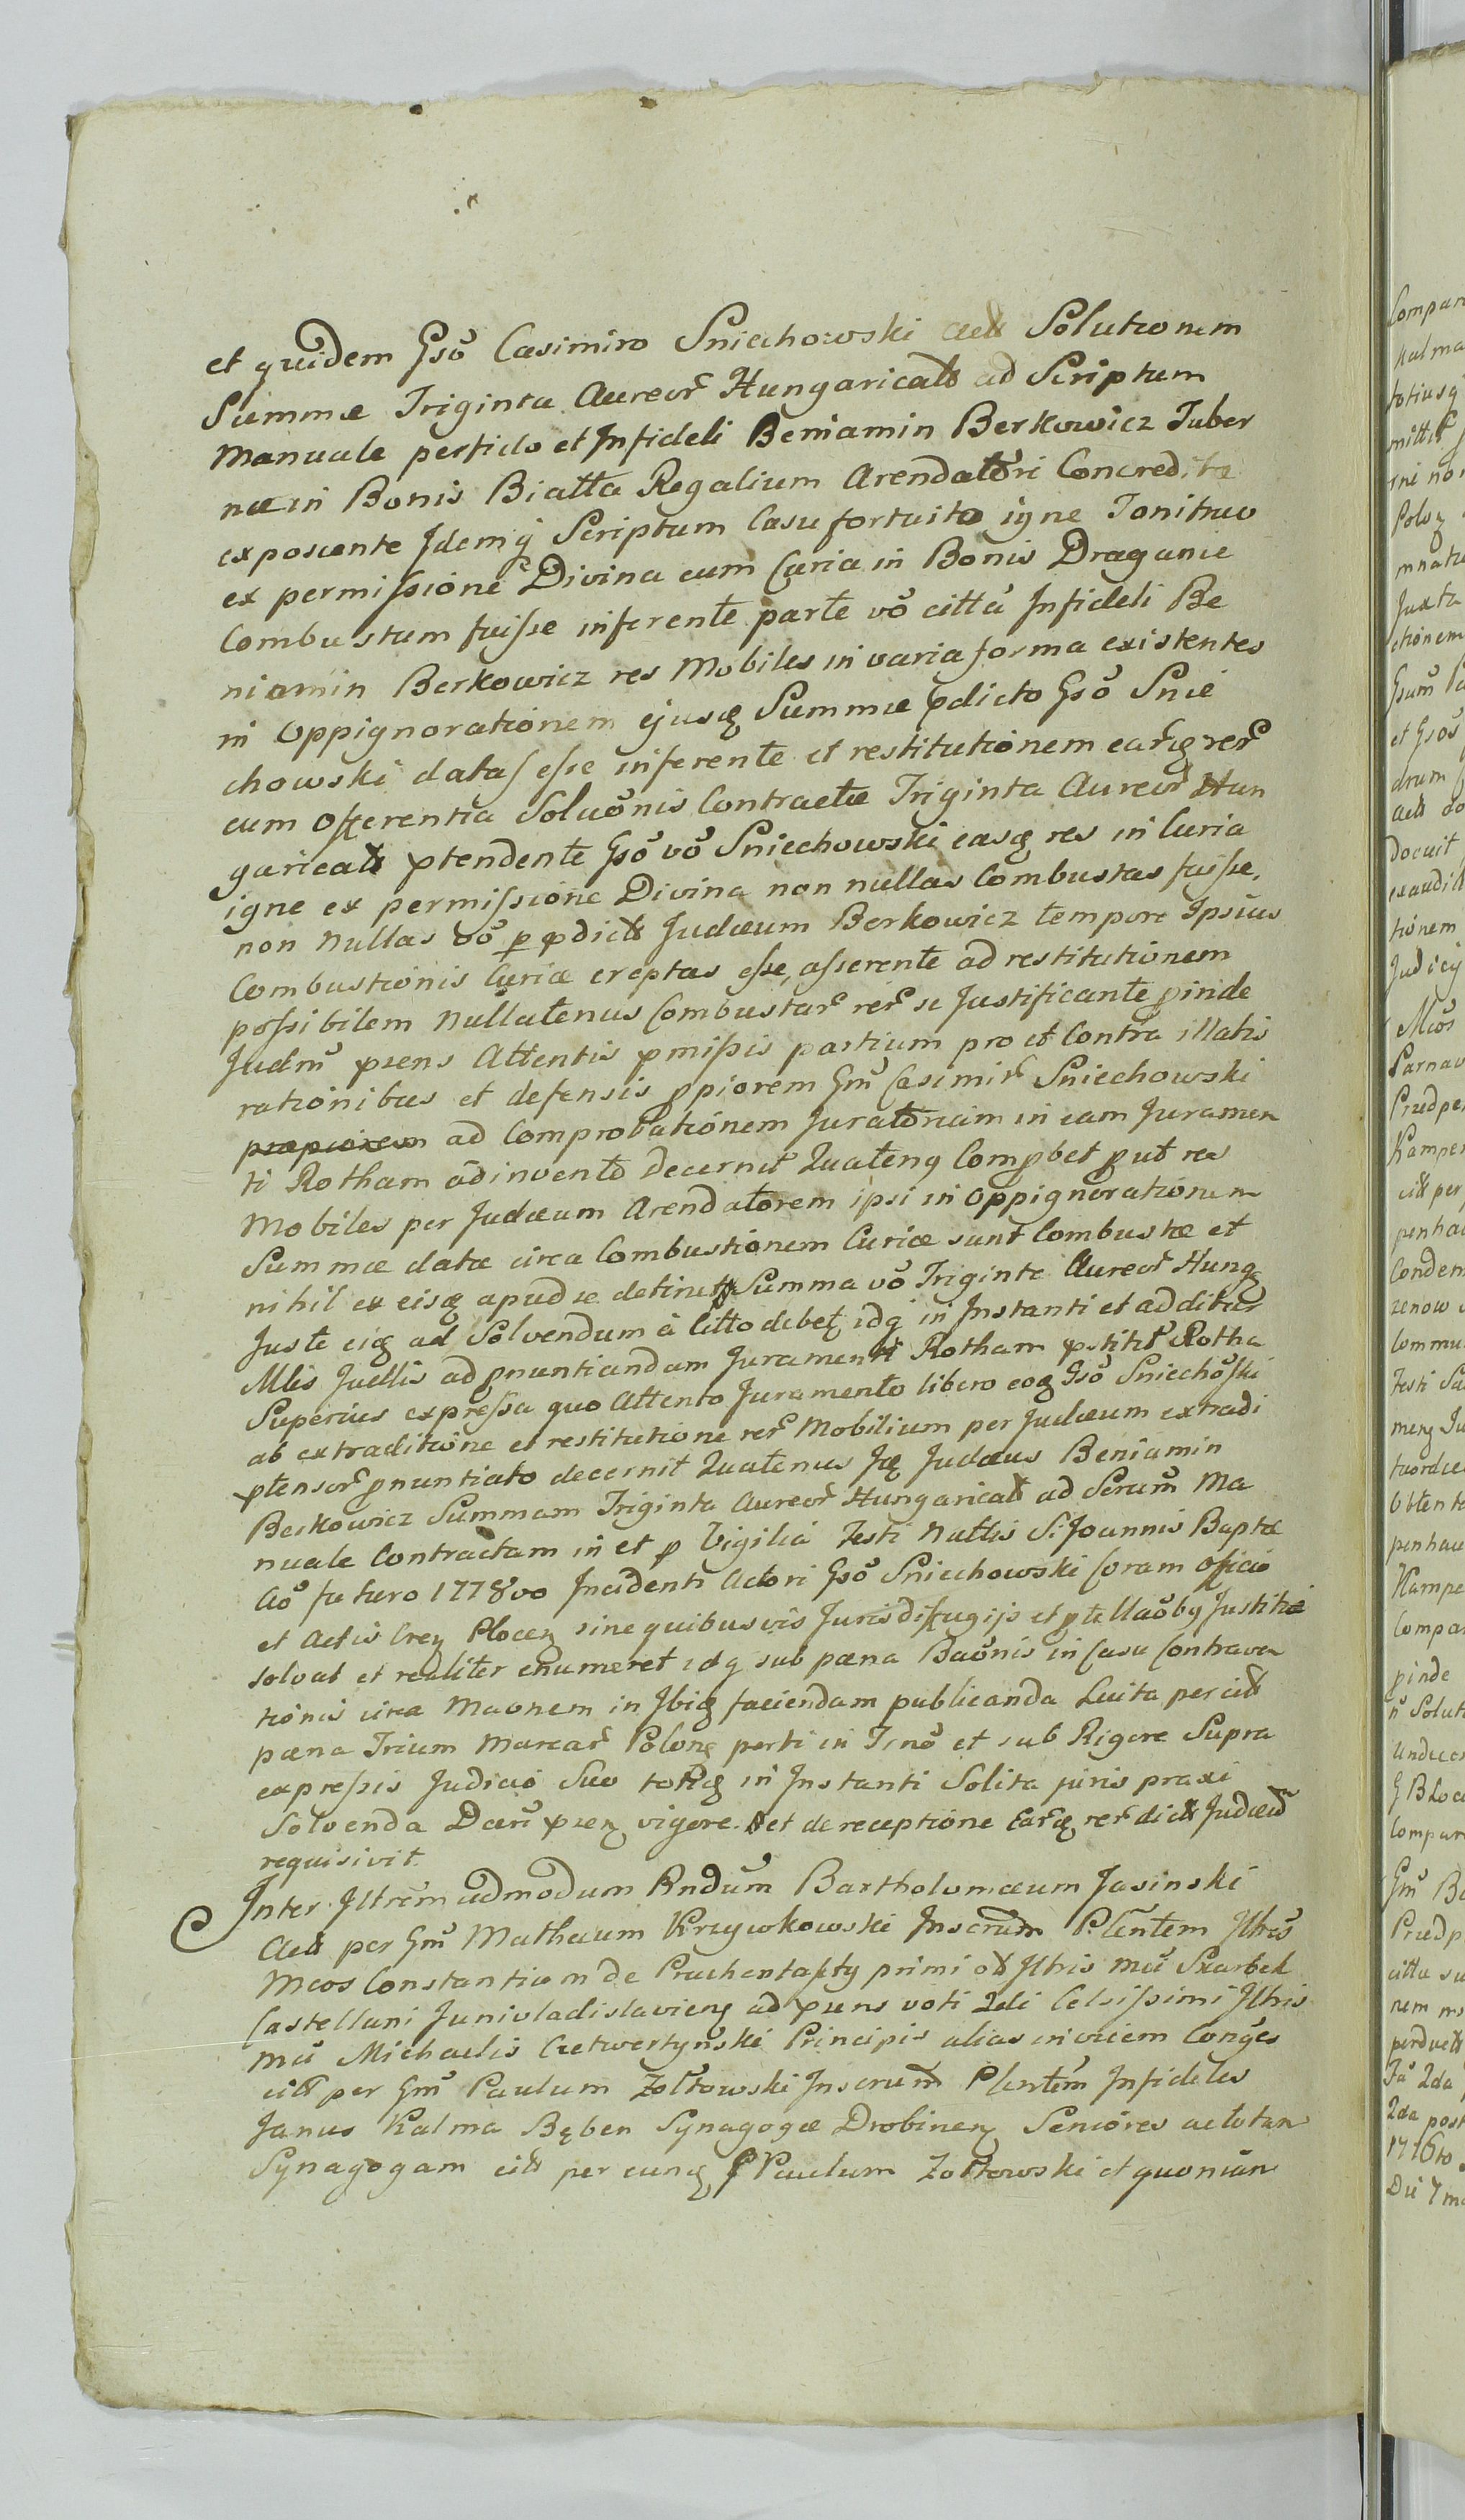 et quidem Gsō Casimiro Sniechowski act Solutionem
Summæ Triginta Aureor Hungaricalt ad Scriptum
Manuale perfido et Infideli Beniamin Berkowicz Taber
næ in Bonis Bialla Regalium Arendatōri Concreditæ
exposcente Idemq Scriptum Casu fortuito igne Tonitruo
ex permissione Divina cum Curia in Bonis Draganie
Combustum fuisse inferente parte vō citta Infideli Be
niamin Berkowicz res Mobiles in varia forma existentes
in Oppignorationem ejusq Summæ pdicto Gsō Snie
chowski datas esse inferente et restitutionem earq rer
cum Offerentia Soluōnis Contractæ Triginta Aureor Hun
garicalt ptendente Gsō vō Sniechowski easq res in Curia
igne ex permissione Divina non nullas Combustas fuisse,
non nullas vō p pdict Judæum Berkowicz tempore Ipsius
Combustionis Curiæ ereptas esse, asserente ad restitutionem
possibilem Nullatenus Combustar rer se Justificante pinde
Judm psens Attentis pmissis partium pro et Contra illatis
rationibus et defensis ppiorem Gm Casimir Sniechowski
propiorem ad Comprobationem Juratoriam in eam Juramen
ti Rotham adinvento decernit Quatenq Compbet put res
Mobiles per Judæum Arendatorem ipsi in Oppignorationem
Summæ datæ circa Combustionem Curiæ sunt Combustæ et
nihil ex eisq apud se detinet Summa vō Triginta Aureor Hung
Juste eiq ad Solvendum à Citto debet idq in Instanti et additus
Mlis Juellis ad pnuntiandam Juramenti Rotham pstitit Rotha
Superius expressa quo Attento Juramento libero eoq Gsō Sniechōski
ab extraditione et restitutione rer Mobilium per Judæum extradi
ptensor pnuntiato decernit Quatenus Iq Judæus Beniamin
Berkowicz Summam Triginta Aureor Hungaricalt ad Scrum Ma
nuale Contractam in et p Vigilia Festi Nattis S. Joannis Baptæ
Aō futuro 1778vo Incidenti Actori Gsō Sniechowski Coram Officio
et Actis Creg Plocen sine quibusvis Juris diffugijs et ptellaōbq Justitiæ
solvat et realiter enumeret idq sub pæna Baōnis in Casu Contraven
tionis circa Maonem in Ibiq faciendam publicanda Luita per cit
pæna Trium Marcar Polong parti in Tnō et sub Rigore Supra
expressis Judicio Suo totiq in Instanti Solita juris praxi
Solvenda Dcri psen vigore. et de receptione Earq rer dict Judæū
requisivit.
Inter Iltrem admodum Rndūm Bartholomæum Jasinski
Act per Gm Mathæum Krzywkowski Inscrum Plentem Iltres
Mcos Constantium de
primi olt Iltris Mci Skarbek
Castellani Junivladislavieng ad psens voti 2di Celsissimi Iltris
Mci Michaelis Czetwertynski Principis alias invicem Conges
citt per Gm Paulum Zołtowski Inscrum Plentem Infideles
Janus Kalma Bęben Synagogæ Drobineng Seniores ac totan
Synagogam citt per eunq P Paulum Zołtowski et quoniān